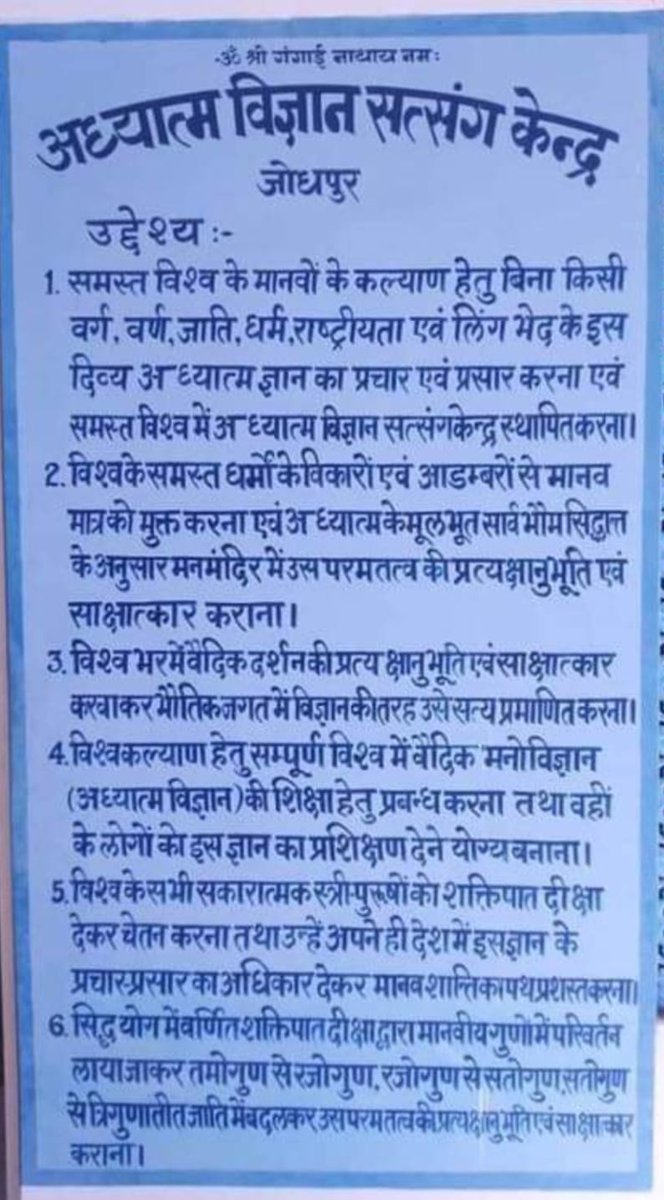 ॐ श्री गंगाई नाथाय नमः
अध्यात्म विज्ञान सत्संग केन्द्र
जोधपुर
उद्देश्य :-
1. समस्त विश्व के मानवों के कल्याण हेतु बिना किसी
वर्ग, वर्ण, जाति, धर्म, राष्ट्रीयता एवं लिंग भेद के इस
दिव्य अध्यात्म ज्ञान का प्रचार एवं प्रसार करना एवं
समस्त विश्व में अध्यात्म विज्ञान सत्संग केन्द्र स्थापित करना।
2. विश्व के समस्त धर्मों के विकारों एवं आडम्बरों से मानव
मात्र को मुक्त करना एवं अध्यात्म के मूलभूत सार्वभौम सिद्धान्त
के अनुसार मन मंदिर में उस परमतत्व की प्रत्यक्षानुभूति एवं
साक्षात्कार कराना।
3. विश्व भर में वैदिक दर्शन की प्रत्यक्षानुभूति एवं साक्षात्कार
करवाकर भौतिक जगत में विज्ञान की तरह उसे सत्य प्रमाणित करना।
4. विश्व कल्याण हेतु सम्पूर्ण विश्व में वैदिक मनोविज्ञान
(अध्यात्म विज्ञान) की शिक्षा हेतु प्रबन्ध करना तथा वहीं
के लोगों को इस ज्ञान का प्रशिक्षण देने योग्य बनाना।
5. विश्व के सभी सकारात्मक स्त्री पुरूषों को शक्तिपात दीक्षा
देकर चेतन करना तथा उन्हें अपने ही देश में इस ज्ञान के
प्रचार-प्रसार का अधिकार देकर मानव शान्ति का पथ प्रशस्त करना।
6. सिद्ध योग में वर्णित शक्तिपात दीक्षा द्वारा मानवीय गुणों में परिवर्तन
लाया जाकर तमोगुण से रजोगुण, रजोगुण से सतोगुण, सतोगुण
से त्रिगुणातीत जाति में बदलकर उस परमतत्व की प्रत्यक्षानुभूति एवं साक्षात्कार
कराना।